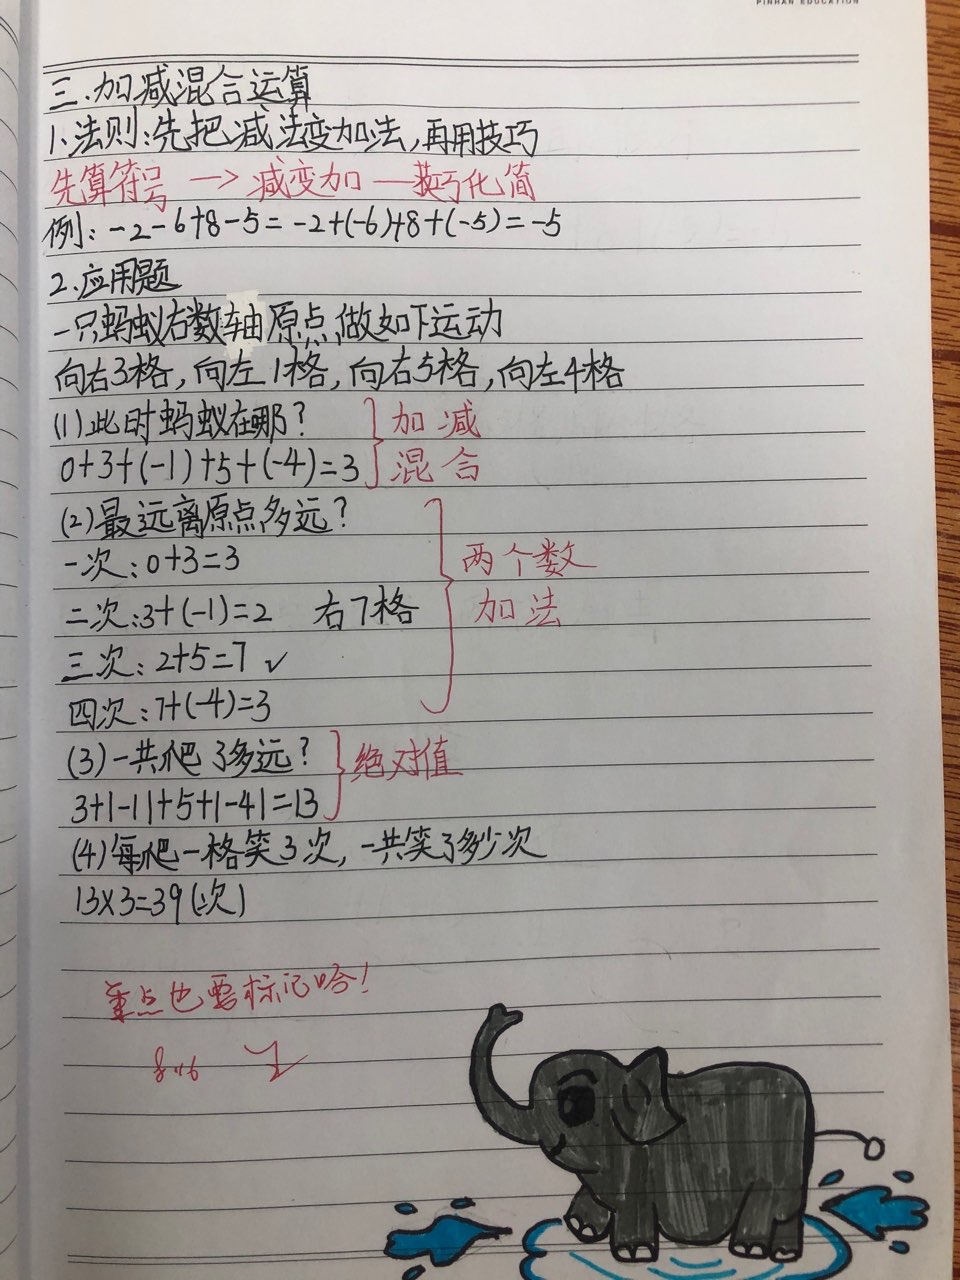 PINHAN EDUCATION
三.加减混合运算
1.法则:先把减法变加法,再用技巧
先算符号 → 减变加 — 技巧化简
例:-2-6+8-5=-2+(-6)+8+(-5)=-5
2.应用题
一只蚂蚁右数轴原点做如下运动
向右3格,向左1格,向右5格,向左4格
(1)此时蚂蚁在哪?
0+3+(-1)+5+(-4)=3
加减
混合
(2)最远离原点多远?
一次:0+3=3
二次:3+(-1)=2 右7格
三次:2+5=7 ✓
四次:7+(-4)=3
两个数
加法
(3)一共爬了多远?
3+|-1|+5+|-4|=13
绝对值
(4)每爬一格笑3次,一共笑了多少次
13×3=39(次)
重点也要标记哈!